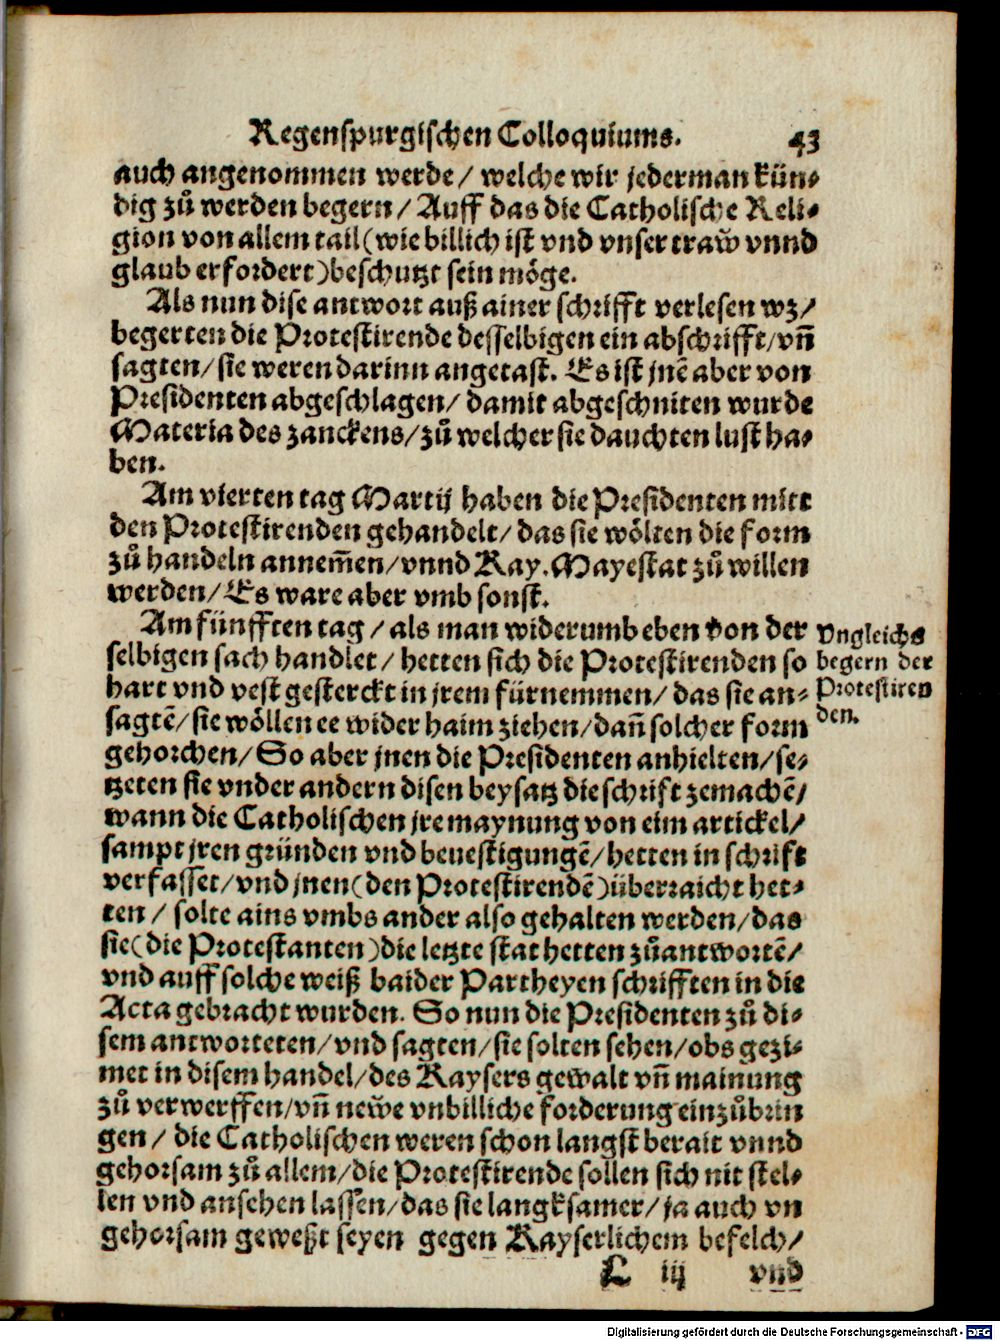 Regenspurgischen Colloquiums. 43
auch angenommen werde / welche wir jederman kün-
dig zů werden begern / Auff das die Catholische Reli-
gion von allem tail (wie billich ist vnd vnser traw vnnd
glaub erfordert) beschutzt sein möge.
Als nun dise antwort auß ainer schrifft verlesen wz /
begerten die Protestirende desselbigen ein abschrifft / vñ
sagten / sie weren darinn angetast. Es ist jnē aber von
Presidenten abgeschlagen / damit abgeschniten wurde
Materia des zanckens / zů welcher sie dauchten lust ha-
ben.
Am vierten tag Martij haben die Presidenten mitt
den Protestirenden gehandelt / das sie wölten die form
zů handeln annem̄en / vnnd Kay. Mayestat zů willen
werden / Es ware aber vmb sonst.
Am fünfften tag / als man widerumb eben von der
selbigen sach handlet / hetten sich die Protestirenden so
hart vnd vest gesterckt in jrem fürnemmen / das sie an-
sagtē / sie wöllen ee wider haim ziehen / dañ solcher form
gehorchen / So aber jnen die Presidenten anhielten / se-
tzeten sie vnder andern disen beysatz die schrift zemachē /
wann die Catholischen jre maynung von eim artickel /
sampt jren gründen vnd beuestigungē / hetten in schrift
verfasset / vnd jnen (den Protestirendē) überraicht het-
ten / solte ains vmbs ander also gehalten werden / das
sie (die Protestanten) die letzte stat hetten zůantwortē /
vnd auff solche weiß baider Partheyen schrifften in die
Acta gebracht wurden. So nun die Presidenten zů di-
sem antworteten / vnd sagten / sie solten sehen / obs gezi-
met in disem handel / des Kaysers gewalt vñ mainung
zů verwerffen / vñ newe vnbilliche forderung einzůbrin
gen / die Catholischen weren schon langst berait vnnd
gehorsam zů allem / die Protestirende sollen sich nit stel-
len vnd ansehen lassen / das sie langksamer / ja auch vn
gehorsam geweßt seyen gegen Kayserlichem befelch /
L iij vnd
Vngleichs
begern der
Protestiren
den.
Digitalisierung gefördert durch die Deutsche Forschungsgemeinschaft - DFG